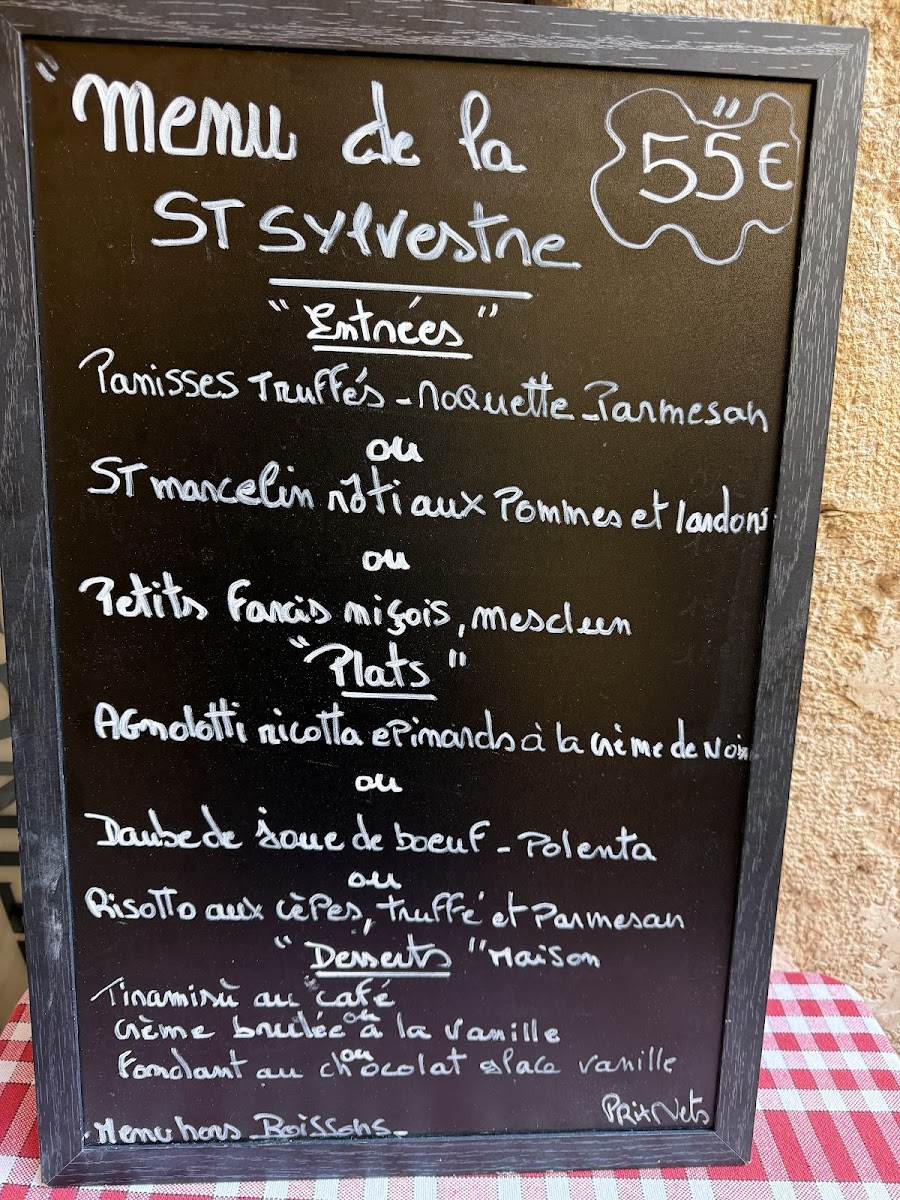 "Menu de la
"55€
ST Sylvestre
"Entrées"
Panisses Truffés - Roquette - Parmesan
ou
ST marcelin rôti aux Pommes et lardons
ou
Petits Farcis niçois, mesclun
"Plats"
Agnolotti ricotta epinards à la crème de Noix
ou
Daube de Joue de boeuf - Polenta
ou
Risotto aux cèpes, truffé et Parmesan
"Desserts" Maison
Tiramisù au café
ou
Crème brulée à la Vanille
ou
Fondant au chocolat glace vanille
Prix Nets
- Menu hors Boissons -